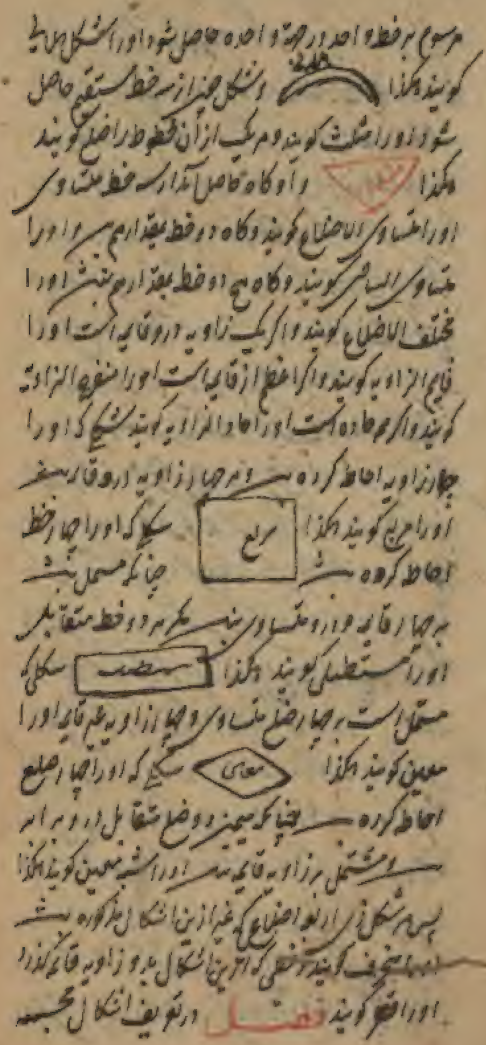 مرسوم بر خط واحد در جهة واحده حاصل شود او را شکل هلالی
کویند هکذا و شکل چند از سه خط مستقیم حاصل
شود او را مثلث کویند و هر یک از آن خطوط را ضلع کویند
هکذا و او کاه حاصل آید از سه خط متساوی
او را متساوی الاضلاع کویند و کاه دو خط بمقدار هم و او را
متساوی الساقین کویند و کاه هیچ دو خط بمقدار هم نباشد او را
مختلف الاضلاع کویند و اکر یک زاویه در و قایمه است او را
قایم الزاویه کویند و اکر اعظم از قایمه است او را منفرج الزاویه
کویند و اکر حاده است او را حاد الزاویه کویند شکلی که او را
چهار زاویه احاطه کرده و هر چهار زاویه در و قایمه
او را مربع کویند هکذا مربع شکلی که او را چهار خط
احاطه کرده باشد چنانکه مشتمل باشد
بر چهار قایمه و در و متساوی مکر هر دو خط متقابل
او را مستطیل کویند هکذا مستطیل شکلی که
مشتمل است بر چهار ضلع متساوی و چهار زاویه غیر قایمه او را
معین کویند هکذا معین شکلی که او را چهار ضلع
احاطه کرده چنانکه میین دو ضلع متقابل در و برابر
و مشتمل بر زاویه قایمه او را شبه معین کویند هکذا
پس هر شکل ذی اربعة اضلاع که غیر ازین اشکال مذکوره باشد
او را منحرف کویند و خطی که ازین اشکال بدو زاویه قایمه کذرد
او را قطر کویند فصل در تعریف اشکال مجسمه